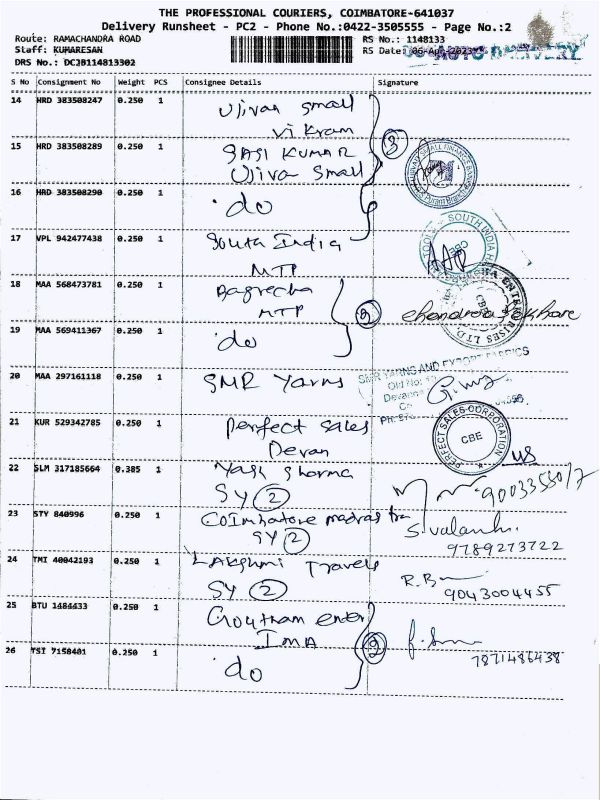 THE PROFESSIONAL COURIERS, COIMBATORE-641037
Delivery Runsheet - PC2 - Phone No.:0422-3505555 - Page No.:2
Route: RAMACHANDRA ROAD RS No.: 1148133
Staff: KUMARESAN RS Date: 06-Apr-2023
DRS No.: DC20114813302
S No Consignment No Weight PCS Consignee Details Signature
14 HRD 383508247 0.250 1 Ujivan small
Vikram
15 HRD 383508289 0.250 1 SASI KUMAR
Ujivan Small
3
16 HRD 383508290 0.250 1 do
17 VPL 942477438 0.250 1 South India
MTP
SOUTH INDIA
CBE
18 MAA 568473781 0.250 1
MTP
2
CBE
19 MAA 569411367 0.250 1 do
20 MAA 297161118 0.250 1 SMR Yarns
SMR YARNS AND EXPORT FABRICS
21 KUR 529342785 0.250 1 Perfect Sales
Devan
PERFECT SALES CORPORATION
CBE
22 SLM 317185664 0.385 1 Yash Sharma
SY 2
23 STY 840996 0.250 1 Coimbatore madras tra
SY 2
9789273722
24 TMI 40042193 0.250 1 Lakshmi Travels
SY 2
9043004455
25 BTU 1484433 0.250 1 Goutham enter
IMA
2
26 TSI 7158401 0.250 1 do
7871486438